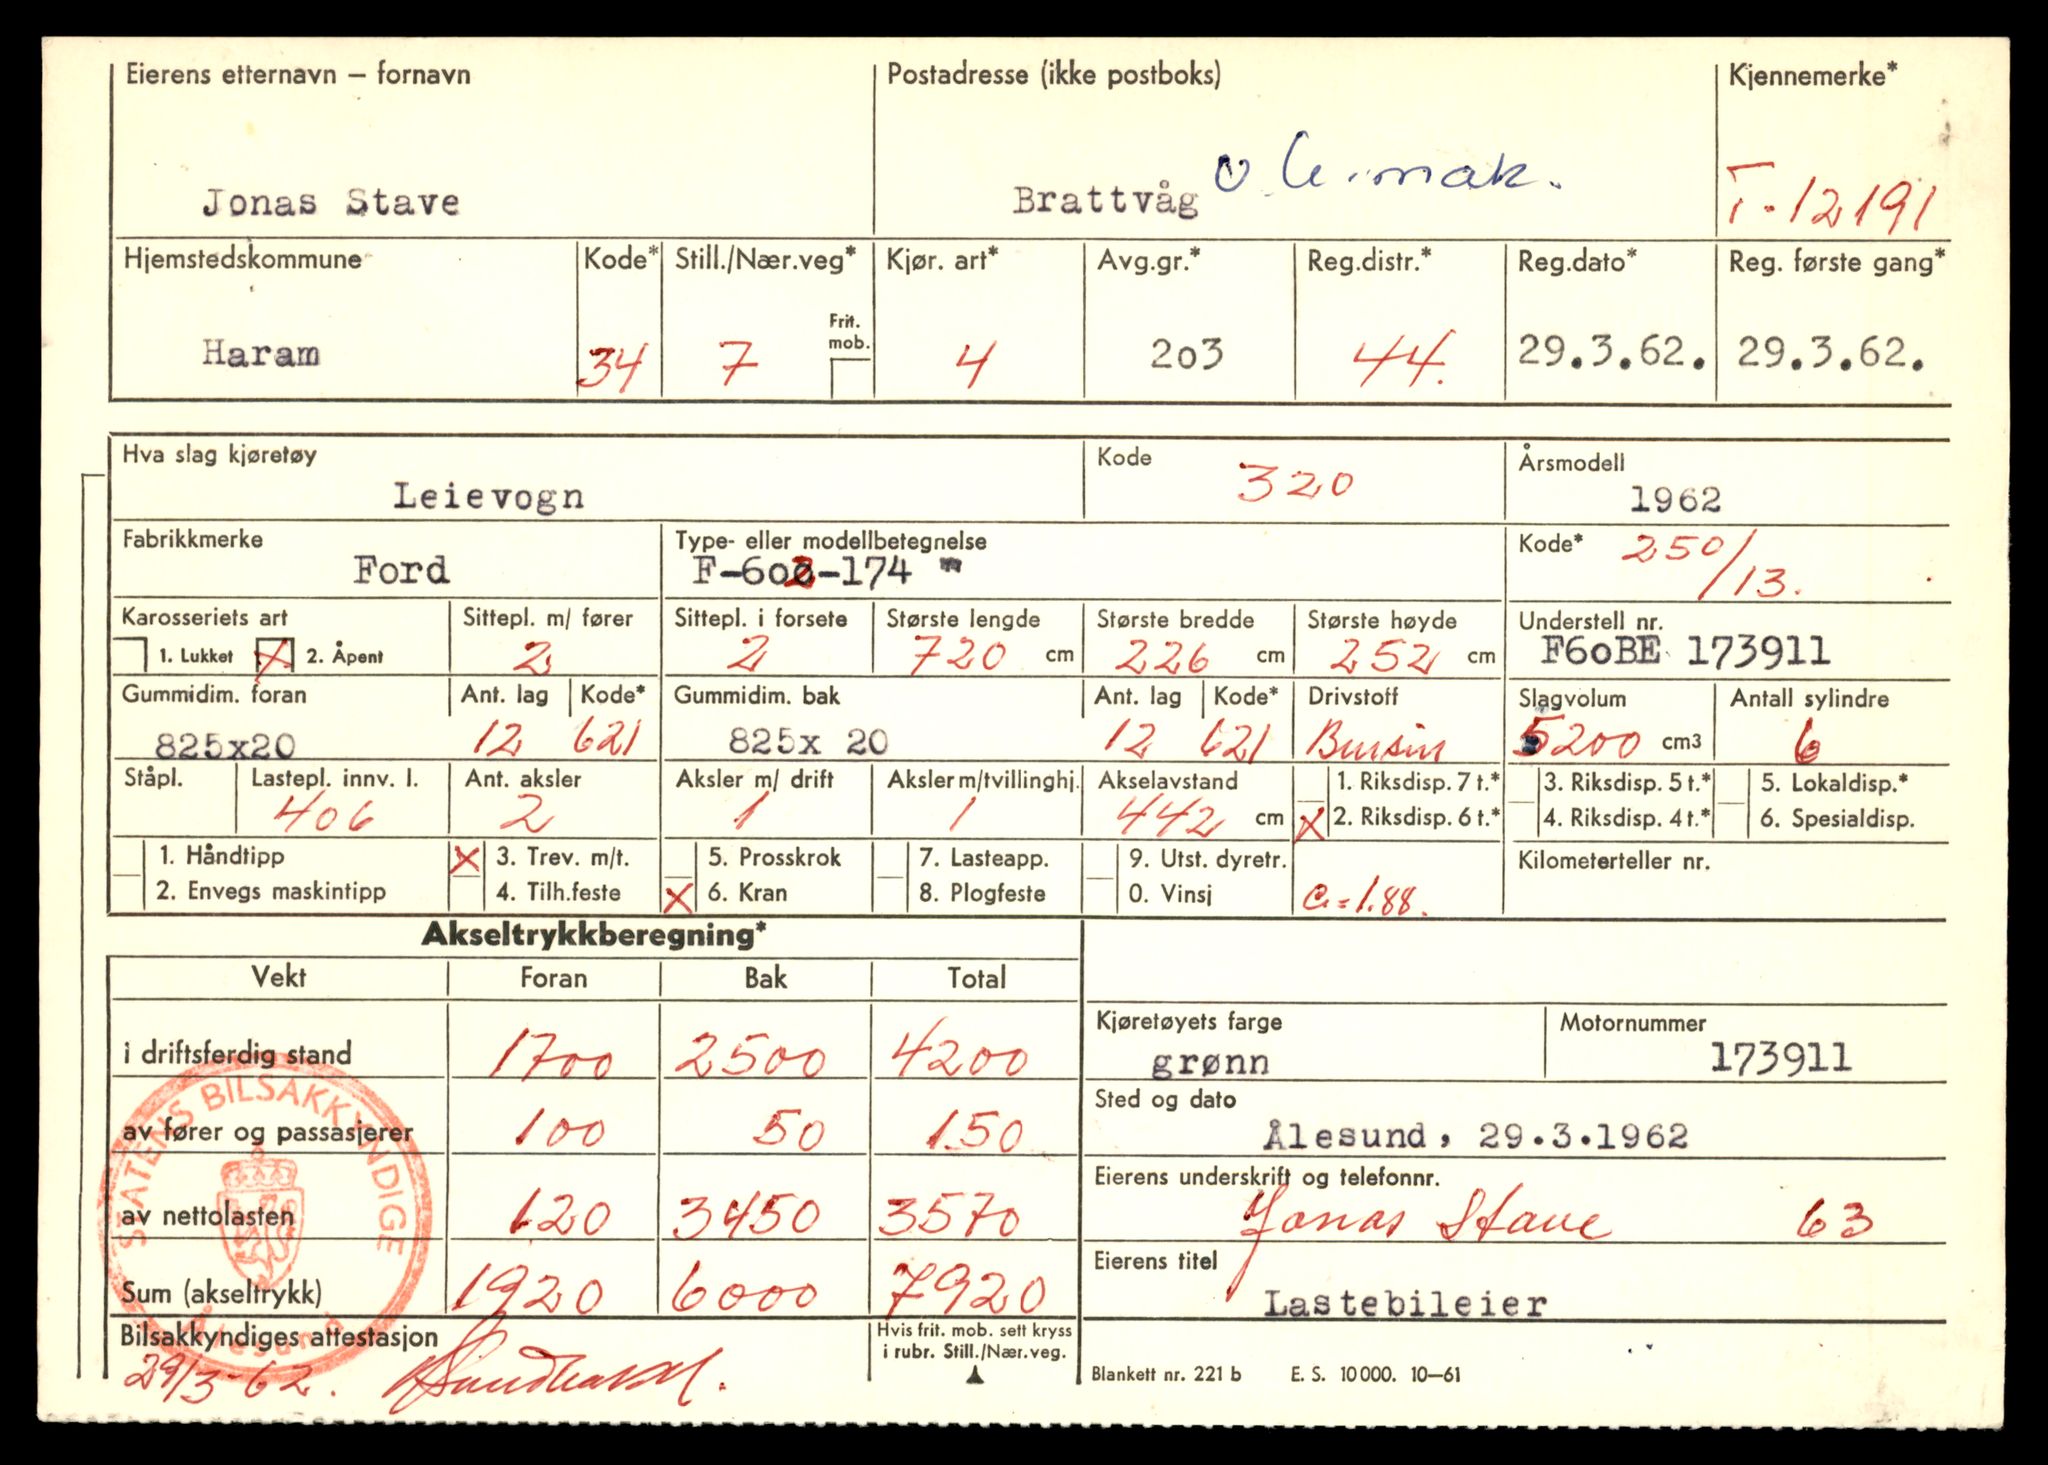 Eierens etternavn – fornavn Postadresse (ikke postboks) Kjennemerke*
Jonas Stave Brattvåg T-12191
Hjemstedskommune Kode* Still./Nær.veg* Kjør. art* Avg.gr.* Reg.distr.* Reg.dato* Reg. første gang*
Frit. mob.
Haram 34 7 4 2o3 44. 29.3.62. 29.3.62.
Hva slag kjøretøy Kode Årsmodell
Leievogn 320 1962
Fabrikkmerke Type- eller modellbetegnelse Kode* 250/13.
Ford F-602-174 "
Karosseriets art Sittepl. m/ fører Sittepl. i forsete Største lengde Største bredde Største høyde Understell nr.
1. Lukket X 2. Åpent 2 2 720 cm 226 cm 252 cm F6oBE 173911
Gummidim. foran Ant. lag Kode* Gummidim. bak Ant. lag Kode* Drivstoff Slagvolum Antall sylindre
825x20 12 621 825x 20 12 621 Bensin 5200 cm3 6
Ståpl. Lastepl. innv. l. Ant. aksler Aksler m/ drift Aksler m/tvillinghj. Akselavstand 1. Riksdisp. 7 t.* 3. Riksdisp. 5 t.* 5. Lokaldisp.*
406 2 1 1 442 cm X 2. Riksdisp. 6 t.* 4. Riksdisp. 4 t.* 6. Spesialdisp.
1. Håndtipp X 3. Trev. m/t. 5. Prosskrok 7. Lasteapp. 9. Utst. dyretr. Kilometerteller nr.
2. Envegs maskintipp 4. Tilh.feste X 6. Kran 8. Plogfeste 0. Vinsj = 1.88.
Akseltrykkberegning*
Vekt Foran Bak Total
Kjøretøyets farge Motornummer
i driftsferdig stand 1700 2500 4200 grønn 173911
Sted og dato
av fører og passasjerer 100 50 150 Ålesund, 29.3.1962
Eierens underskrift og telefonnr.
av nettolasten 120 3450 3570 Jonas Stave 63
Eierens titel
Sum (akseltrykk) 1920 6000 7920 Lastebileier
Bilsakkyndiges attestasjon Hvis frit. mob. sett kryss
i rubr. Still./Nær.veg.
29/3-62.
Blankett nr. 221 b E. S. 10 000. 10–61
STATENS BILSAKKYNDIGE
Ålesund